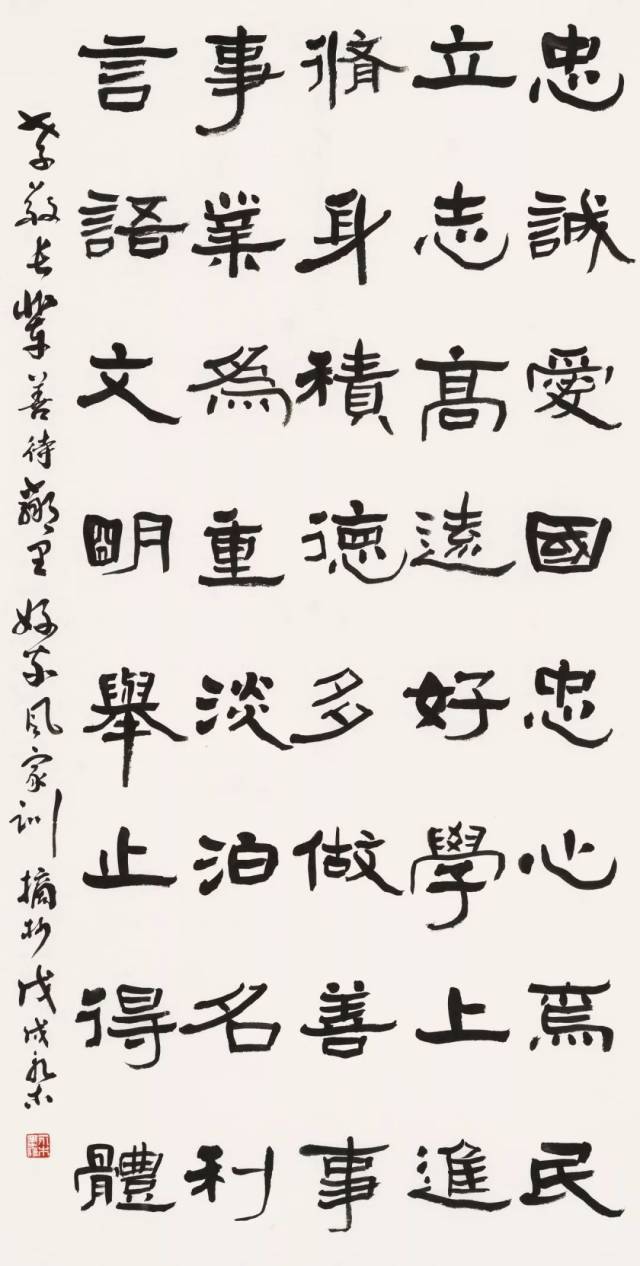 忠誠愛國忠心爲民
立志高遠好學上進
脩身積德多做善事
事業為重淡泊名利
言語文明舉止得體
孝敬長輩善待鄰里好家風家訓摘抄戊戌